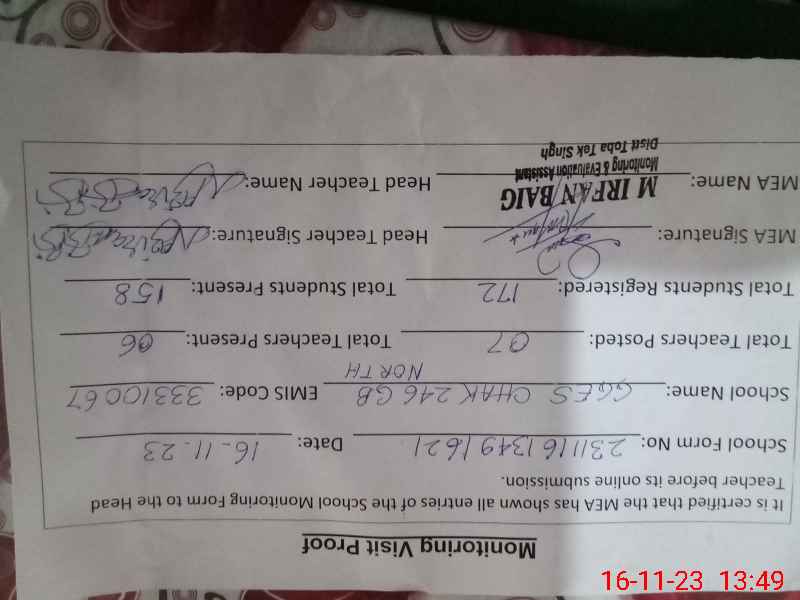 Monitoring Visit Proof
It is certified that the MEA has shown all entries of the School Monitoring Form to the Head
Teacher before its online submission.
School Form No: 23111613491621 Date: 16-11-23
School Name: GGES CHAK 246 GB NORTH EMIS Code: 33310067
Total Teachers Posted: 07 Total Teachers Present: 06
Total Students Registered: 172 Total Students Present: 158
MEA Signature: Head Teacher Signature:
MEA Name: M IRFAN BAIG Head Teacher Name:
Monitoring & Evaluation Assistant
Distt Toba Tek Singh
16-11-23 13:49